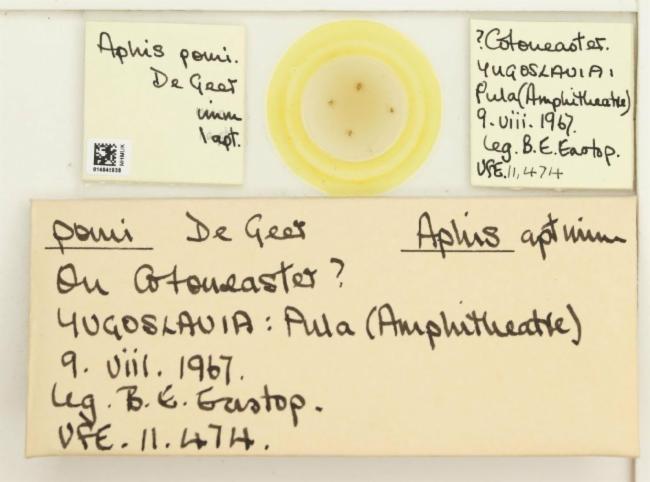 Aphis pomi.
De Geer
imm
1 apt.
NHMUK
014845838
?Cotoneaster.
YUGOSLAVIA:
Pula (Amphitheatre)
9. viii. 1967.
leg. B.E. Eastop.
VFE. 11,474
pomi De Geer Aphis apt imm
On Cotoneaster?
YUGOSLAVIA: Pula (Amphitheatre)
9. viii. 1967.
leg. B. E. Eastop.
VFE. 11. 474.